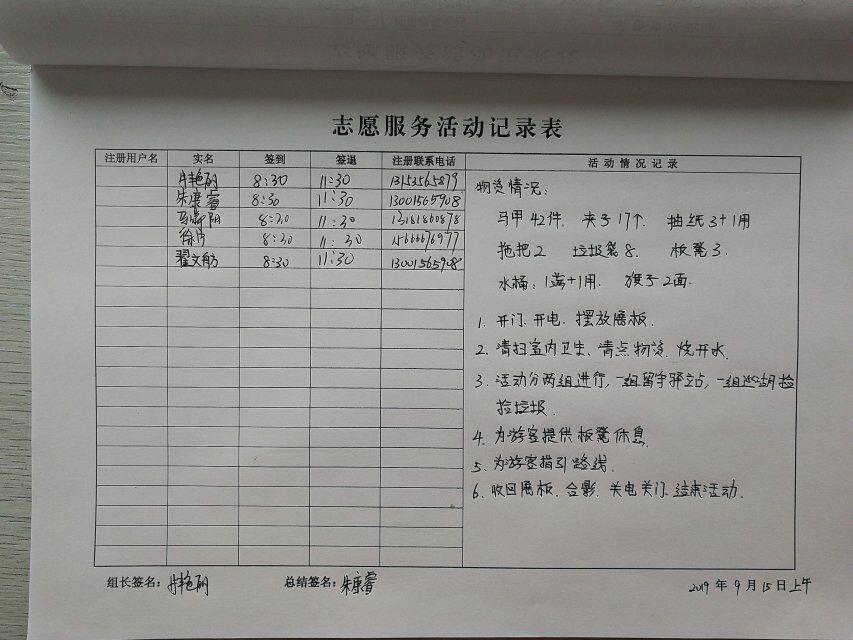 志愿服务活动记录表
注册用户名 实名 签到 签退 注册联系电话 活动情况记录
8:30 11:30 13153565879
朱康睿 8:30 11:30 13001565908
8:30 11:30 13181860878
8:30 11:30 15666676977
翟文舫 8:30 11:30 13001565908
物资情况:
马甲42件. 夹子17个. 抽纸3+1用
拖把2 垃圾篓8. 板凳3.
水桶:1满+1用. 旗子2面.
1. 开门、开电、摆放展板.
2. 清扫室内卫生、清点物资、烧开水.
3. 活动分两组进行,一组留守驿站,一组巡湖捡
捡垃圾.
4. 为游客提供板凳休息.
5. 为游客指引路线.
6. 收回展板、合影、关电关门、结束活动.
组长签名: 总结签名: 朱康睿 2019年9月15日上午